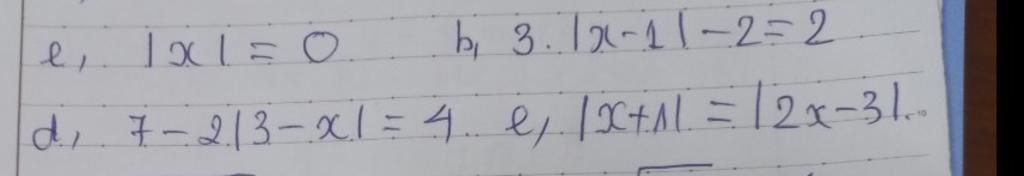 e, |x| = 0 b, 3. |x-1| - 2 = 2
d, 7 - 2|3 - x| = 4 e, |x+1| = |2x-3|...